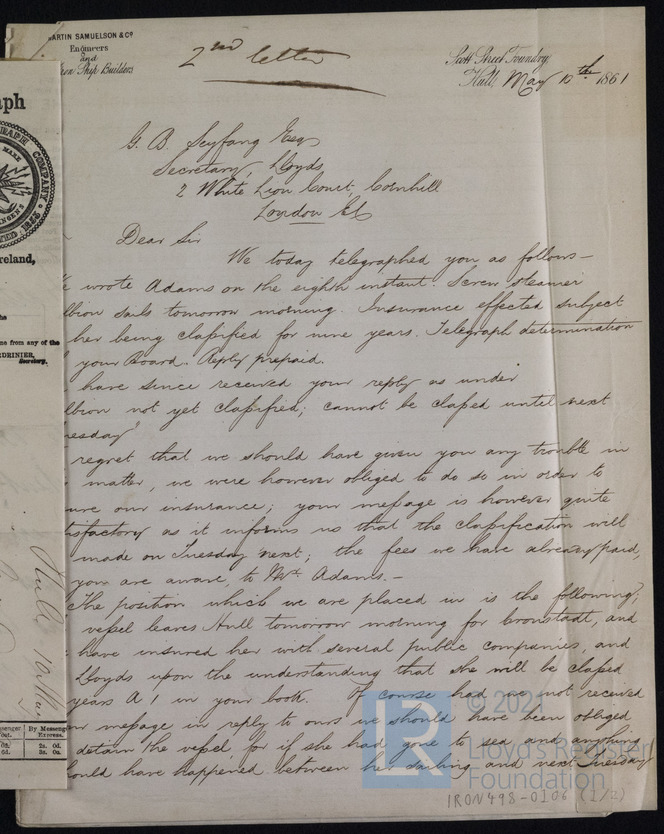 MARTIN SAMUELSON & Co
Engineers
and
Iron Ship Builders
2nd letter
Scott Street Foundry,
Hull, May 10th 1861
G. B. Seyfang Esq
Secretary, Lloyds
2 White Lion Court, Cornhill
London EC
Dear Sir
We today telegraphed you as follows—
wrote Adams on the eighth instant. Screw steamer
lbion sails tomorrow morning. Insurance effected subject
her being classified for nine years. Telegraph determination
your Board. Reply prepaid.
have since received your reply as under
lbion not yet classified; cannot be classed until next
uesday"
regret that we should have given you any trouble in
matter, we were however obliged to do so in order to
ure our insurance; your message is however quite
tisfactory as it informs us that the classification will
made on Tuesday next; the fees we have already paid,
you are aware, to Mr. Adams.—
The position which we are placed in is the following;
vessel leaves Hull tomorrow morning for Cronstadt, and
have insured her with several public companies, and
Lloyds upon the understanding that she will be classed
years A 1 in your book. Of course had we not received
ur message in reply to ours we should have been obliged
detain the vessel, for if she had gone to sea and anything
ould have happened between her sailing and next Tuesday
aph
GRAPH COMPANY
MARK
reland,
the
me from any of the
RDRINIER,
Secretary.
Hull
senger
By Messenger
Express.
0d.
2s. 0d.
6d.
3s. 0d.
© 2021
LR
Lloyd's Register
Foundation
IRON498-0106 (1/2)